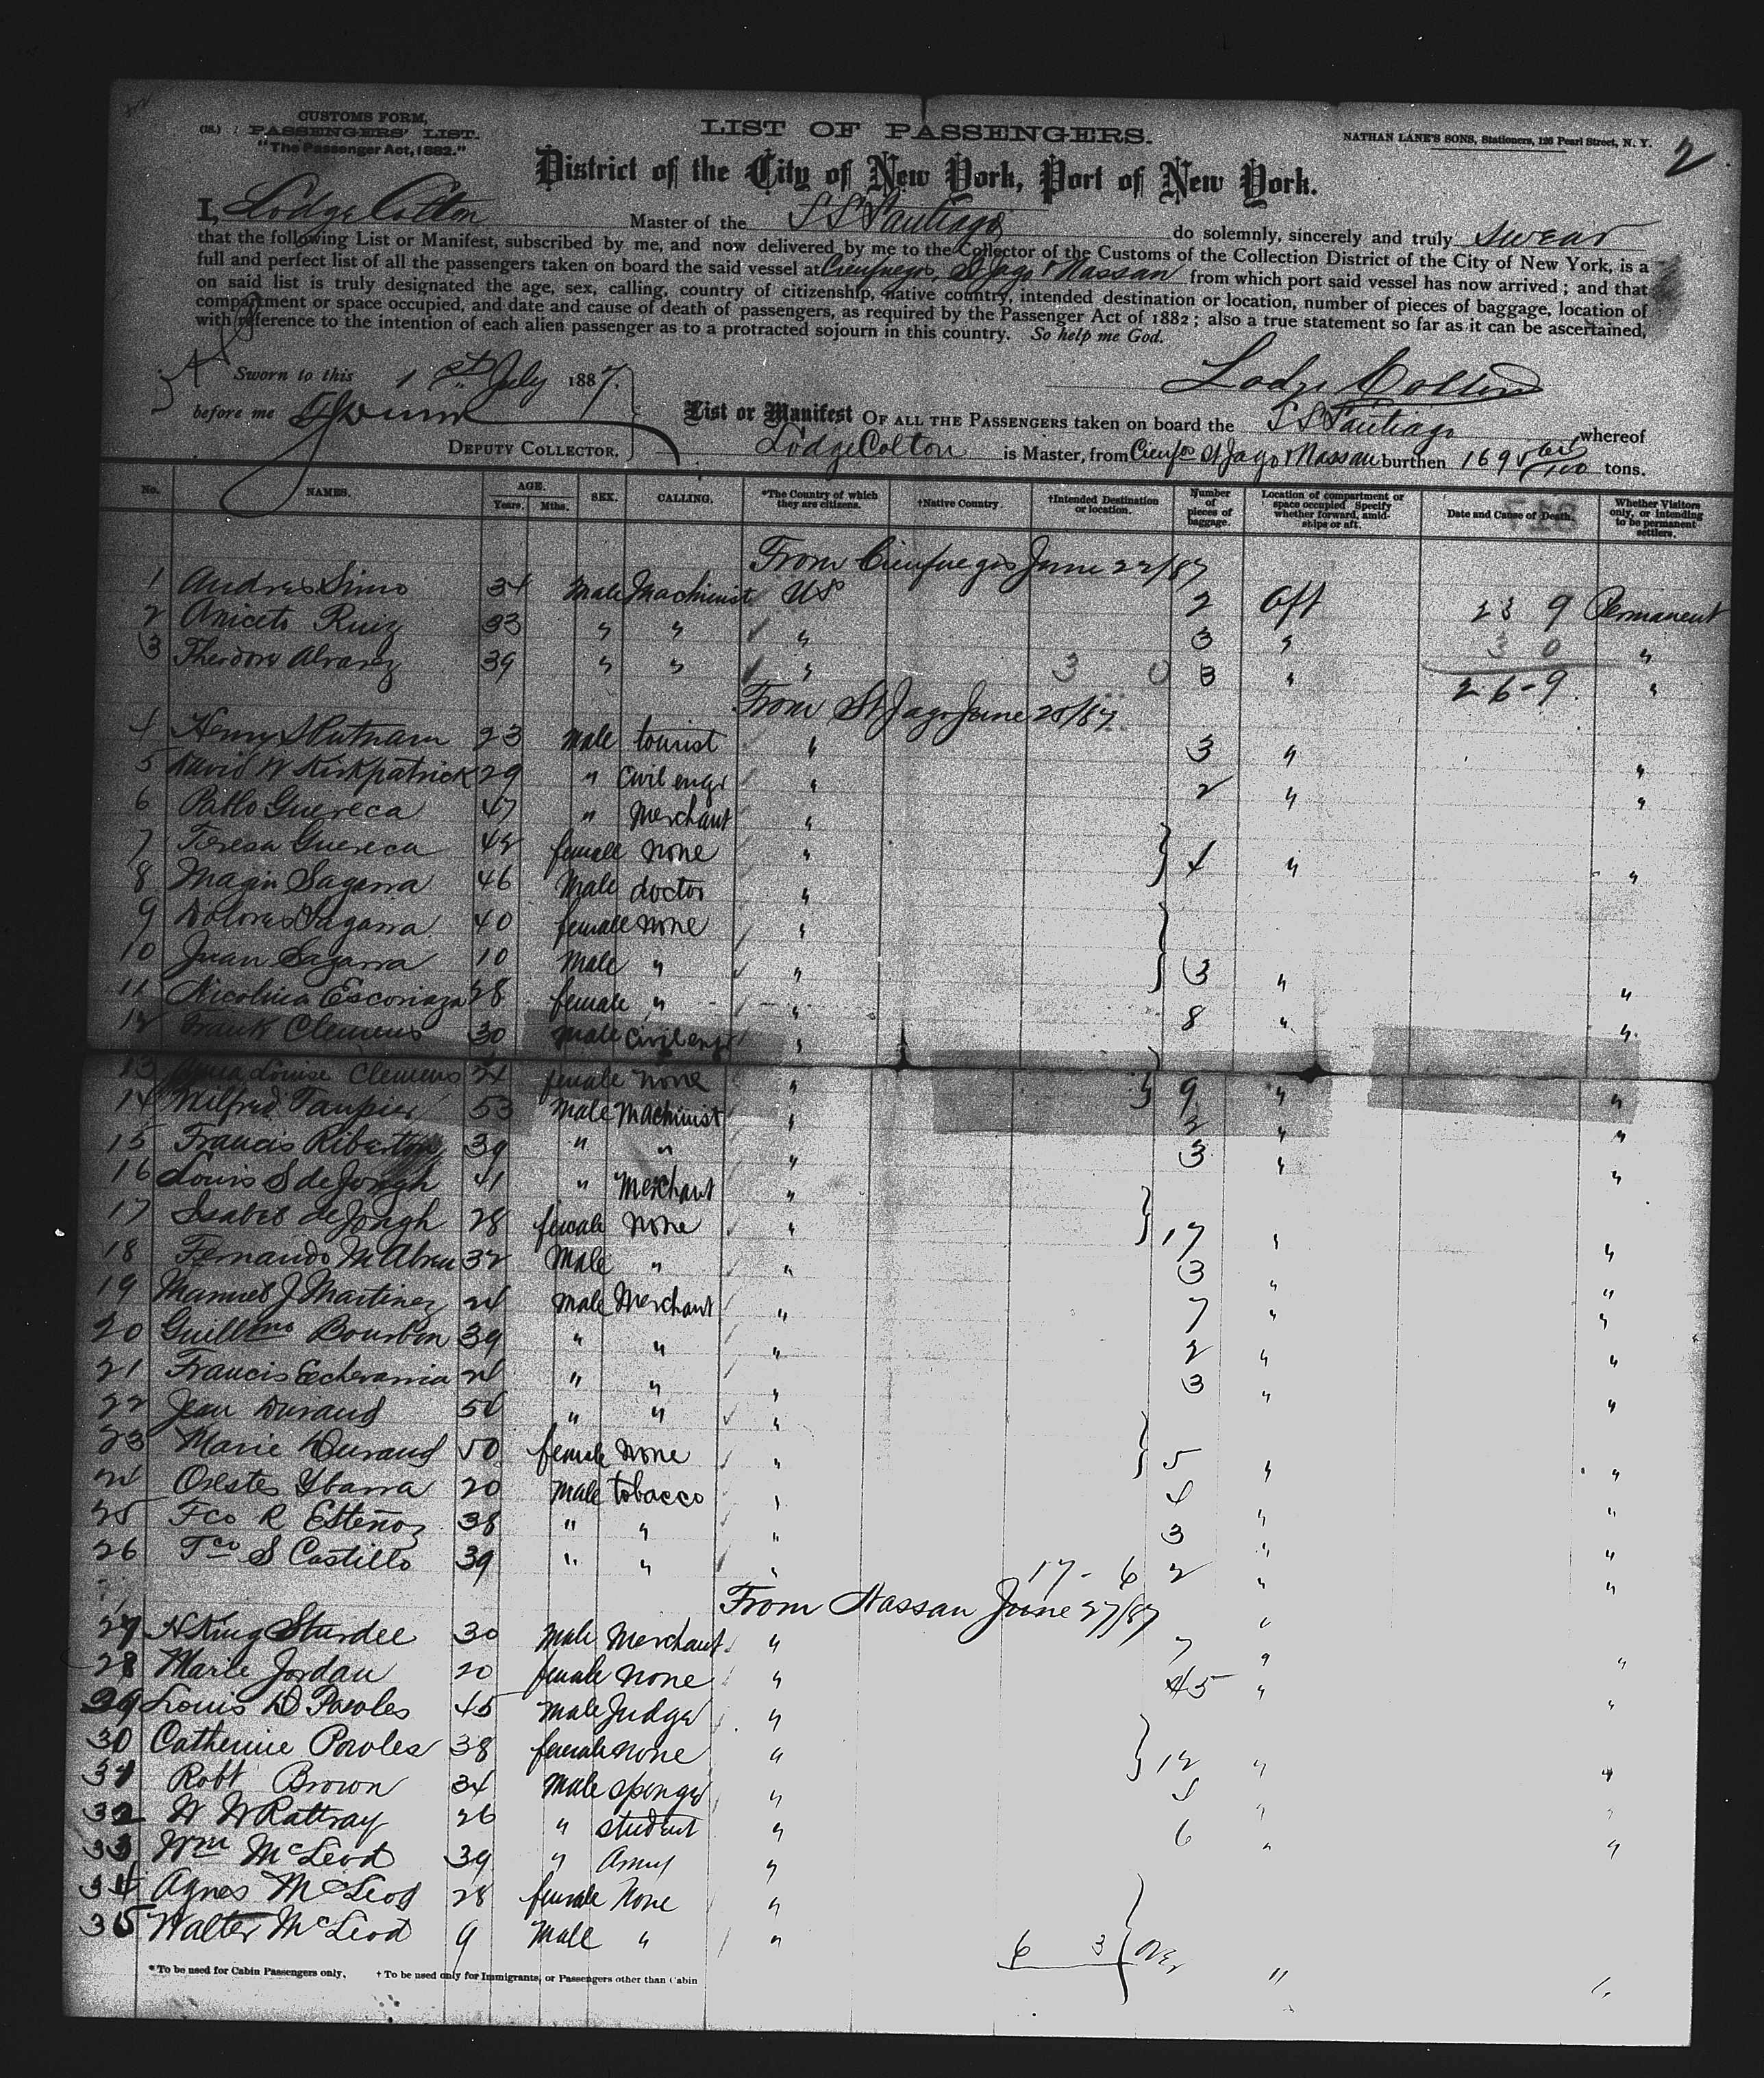 2
CUSTOMS FORM,
PASSENGERS' LIST.
"The Passenger Act, 1882."
LIST OF PASSENGERS.
NATHAN LANE'S SONS, Stationers, 126 Pearl Street, N. Y.
District of the City of New York, Port of New York.
I, Lodge Colton Master of the SS Santiago do solemnly, sincerely and truly swear
that the following List or Manifest, subscribed by me, and now delivered by me to the Collector of the Customs of the Collection District of the City of New York, is a
full and perfect list of all the passengers taken on board the said vessel at Cienfuegos, St Jago & Nassau from which port said vessel has now arrived; and that
on said list is truly designated the age, sex, calling, country of citizenship, native country, intended destination or location, number of pieces of baggage, location of
compartment or space occupied, and date and cause of death of passengers, as required by the Passenger Act of 1882; also a true statement so far as it can be ascertained,
with reference to the intention of each alien passenger as to a protracted sojourn in this country. So help me God.
Sworn to this 1st July 1887.
Lodge Colton
before me
DEPUTY COLLECTOR.
List or Manifest OF ALL THE PASSENGERS taken on board the SS Santiago whereof
Lodge Colton is Master, from Cienfos St Jago & Nassau burthen 1695 tons.
No. NAMES. AGE. Years. Mths. SEX. CALLING. *The Country of which they are citizens. †Native Country. †Intended Destination or location. Number of pieces of baggage. Location of compartment or space occupied Specify whether forward, amidships or aft. Date and Cause of Death. Whether Visitors only, or intending to be permanent settlers.
From Cienfuegos June 22/87
1 Andres Simo 34 Male Machinist US 2 Aft 23 9 Permanent
2 Aniceto Ruiz 33 " " " 3 " 3 0 "
3 Theodore Alvarez 39 " " " 3 0 3 " 26-9 "
From St Jago June 25/87
4 Henry S Putnam 23 male tourist " 3 " "
5 David W Kirkpatrick 29 " Civil engr " 2 " "
6 Pablo Guereca 47 " Merchant "
7 Teresa Guereca 42 female none " } 4 " "
8 Magin Sagarra 46 Male doctor "
9 Dolores Sagarra 40 female none "
10 Juan Sagarra 10 Male " " } 3 " "
11 Nicolina Escoriaza 28 female " " 8 " "
12 Frank Clemens 30 male Civil engr "
13 Louise Clemens 24 female none " } 9 " "
14 Wilfred Taupier 53 Male Machinist " 2 " "
15 Francis Riberton 39 " " " 3 " "
16 Louis S de Jongh 41 " Merchant "
17 Isabel de Jongh 28 female none " } 17 " "
18 Fernando M Abreu 32 Male " " 3 " "
19 Manuel J Martinez 24 male Merchant " 7 " "
20 Guillmo Bourbon 39 " " " 2 " "
21 Francis Echevarria 24 " " " 3 " "
22 Jean Durand 56 " " "
23 Marie Durand 50 female none " } 5 " "
24 Orestes Ybarra 20 male tobacco " 4 " "
25 Fco R Estenoz 38 " " " 3 " "
26 Fco S Castillo 39 " " " 17 - 6 2 " "
From Nassau June 27/87
27 H King Sturdee 30 male Merchant " 7 " "
28 Marie Jordan 20 female none " 5 " "
29 Louis D Powles 45 male Judge "
30 Catherine Powles 38 female none " } 12 " "
31 Robt Brown 34 male sponger " "
32 W W Rattray 26 " student " 6 " "
33 Wm McLeod 39 " Army "
34 Agnes McLeod 28 female None "
35 Walter McLeod 9 Male " " 6 3 { Over " "
* To be used for Cabin Passengers only. † To be used only for Immigrants, or Passengers other than Cabin